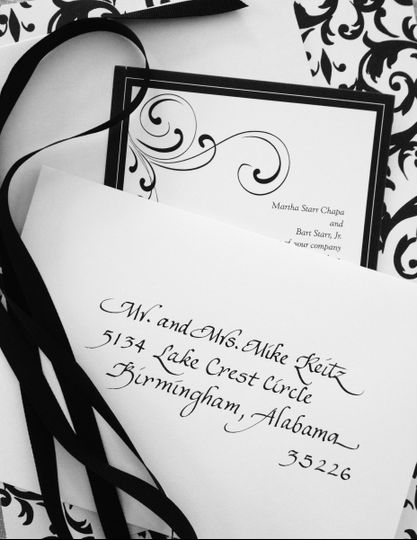 Martha Starr Chapa
and
Bart Starr, Jr.
of your company
Mr. and Mrs. Mike Reitz
5134 Lake Crest Circle
Birmingham, Alabama
35226